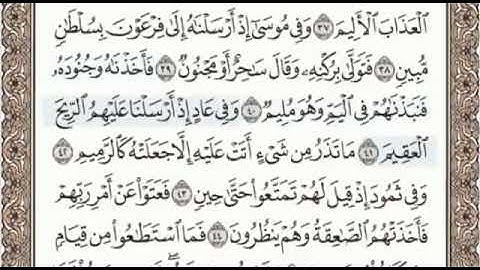 ٱلْعَذَابَ ٱلْأَلِيمَ ٣٧ وَفِى مُوسَىٰٓ إِذْ أَرْسَلْنَٰهُ إِلَىٰ فِرْعَوْنَ بِسُلْطَٰنٍ
مُّبِينٍ ٣٨ فَتَوَلَّىٰ بِرُكْنِهِۦ وَقَالَ سَٰحِرٌ أَوْ مَجْنُونٌ ٣٩ فَأَخَذْنَٰهُ وَجُنُودَهُۥ
فَنَبَذْنَٰهُمْ فِى ٱلْيَمِّ وَهُوَ مُلِيمٌ ٤٠ وَفِى عَادٍ إِذْ أَرْسَلْنَا عَلَيْهِمُ ٱلرِّيحَ
ٱلْعَقِيمَ ٤١ مَا تَذَرُ مِن شَىْءٍ أَتَتْ عَلَيْهِ إِلَّا جَعَلَتْهُ كَٱلرَّمِيمِ ٤٢
وَفِى ثَمُودَ إِذْ قِيلَ لَهُمْ تَمَتَّعُوا۟ حَتَّىٰ حِينٍ ٤٣ فَعَتَوْا۟ عَنْ أَمْرِ رَبِّهِمْ
فَأَخَذَتْهُمُ ٱلصَّٰعِقَةُ وَهُمْ يَنظُرُونَ ٤٤ فَمَا ٱسْتَطَٰعُوا۟ مِن قِيَامٍ